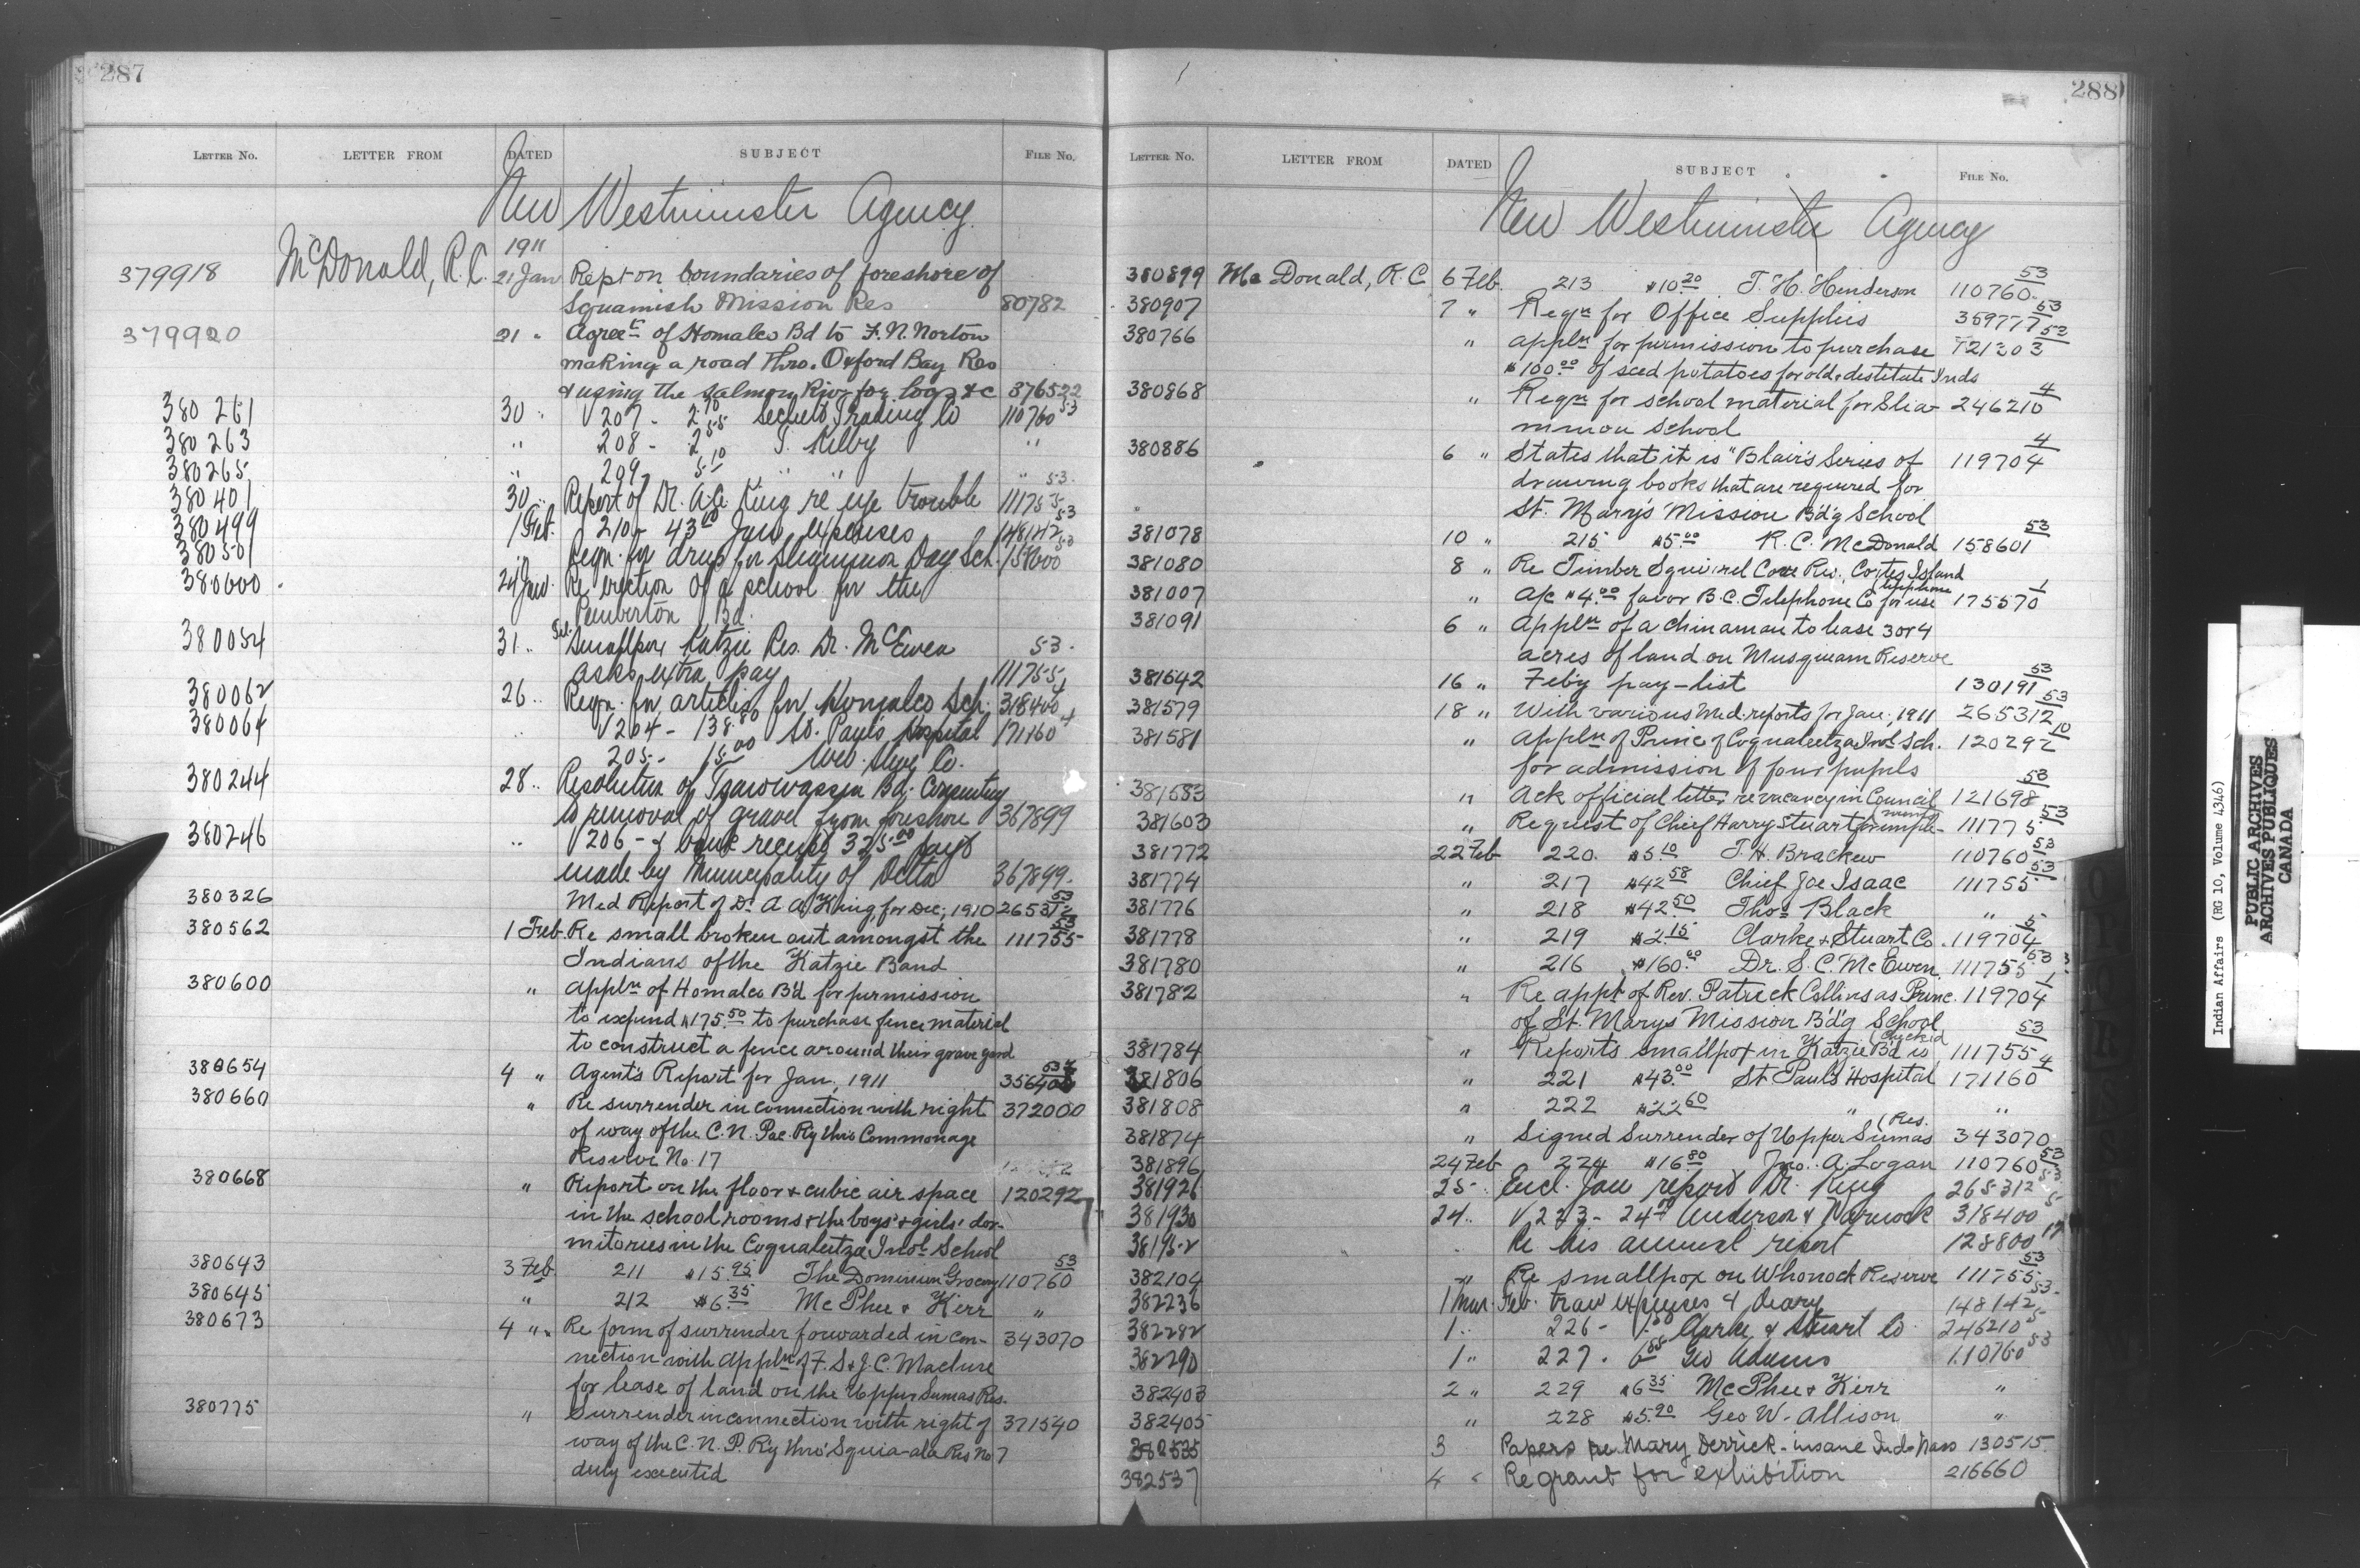 287
LETTER No. LETTER FROM DATED SUBJECT FILE No.
New Westminster Agency
1911
379918 McDonald, R.C. 21 Jan Rept on boundaries of foreshore of
Squamish Mission Res 80782
379920 21 " Agreet. of Homalco Bd to F. N. Norton
making a road thro. Orford Bay Res
& using the Salmon Riv for logs &c 376522
380261 30 " V 207 - 2.70 Sechelt Trading Co 110760 53
380263 " 208 - 2.55 T. Kilby "
380265 " 209 - 5.10 " " "
380401 30 " Report of Dr. A.A. King re eye trouble 111755 53
380499 1 Feb. 210 - 43.60 Jan expenses 148142 53
380501 " Reqn. for drugs for Sliammon Day Sch. 158600 53
380600 24 Jan. Re erection of a school for the
Pemberton Bd.
380054 31 " Tel. Smallpox Katzie Res. Dr. McEwen 53
asks extra pay 111755
380062 26 " Reqn. for articles for Homalco Sch. 318400 4
380064 " V 204 - 138.80 St. Paul's Hospital 171160 4
205 - 15.00 Wes. Supy Co.
380244 28 " Resolution of Tsawwassen Bd. Consenting
to removal of gravel from foreshore 367899
380246 " V 206 - & bank receipt 325.00 payt
made by Municipality of Delta 367899
380326 Med Report of Dr. A A King for Dec, 1910 265312 53
380562 1 Feb. Re small broken out amongst the 111755 53
Indians of the Katzie Band
380600 " Appln of Homalco B'd for permission
to expend $175.50 to purchase fence material
to construct a fence around their grave yard
380654 4 " Agent's Report for Jan, 1911 356408 53
380660 " Re surrender in connection with right 372000
of way of the C. N. Pac. Ry thro Commonage
Reserve No. 17
380668 " Report on the floor & cubic air space 120292
in the school rooms & the boys' & girls' dor-
mitories in the Coqualeetza Indl School
380643 3 Feb 211 $15.95 The Dominion Grocery 110760 53
380645 " 212 $6.35 McPhee & Kerr "
380673 4 " Re form of surrender forwarded in con- 343070
nection with appln of F. S & J. C. Maclure
for lease of land on the Upper Sumas Res.
380775 " Surrender in connection with right of 371540
way of the C. N. P. R'y thro' Squia-ala Res No 7
duly executed
288
LETTER No. LETTER FROM DATED SUBJECT FILE No.
New Westminster Agency
380899 McDonald, R C 6 Feb. 213 $10.20 T. H. Henderson 110760 53
380907 7 " Reqn for Office Supplies 359777 53
380766 " Appln for permission to purchase 121303 53
$100.00 of seed potatoes for old & destitute Inds
380868 " Reqn for school material for Slia- 246210 4
mmon School
380886 6 " States that it is "Blair's Series of 119704 4
drawing books that are required for
St. Mary's Mission B'd'g School
381078 10 " 215 $5.00 R. C. McDonald 158601 53
381080 8 " Re Timber Squirrel Cove Res. Cortes Island
381007 " A/c $4.00 favor B.C. Telephone Co for use telephone 175570 1
381091 6 " Appln of a Chinaman to lease 3 or 4
acres of land on Musqueam Reserve
381642 16 " Feb'y pay-list 130191 53
381579 18 " With various Med. reports for Jan., 1911 265312 53
381581 " Appln of Princ of Coqualeetza Indl Sch. 120292 10
for admission of four pupils
381583 " Ack official letter re vacancy in Council 121698 53
381603 " Request of Chief Harry Stuart for imple- ments 111775 53
381772 22 Feb 220. $5.10 T. H. Bracken 110760 53
381774 " 217 $42.58 Chief Joe Isaac 111755 53
381776 " 218 $42.50 Thos Black "
381778 " 219 $2.15 Clarke & Stuart Co. 119704 5
381780 " 216 $160.00 Dr. S. C. McEwen 111755 53
381782 " Re appt of Rev. Patrick Collins as Princ. 119704 1
of St. Marys Mission B'd'g School
381784 " Reports smallpox in Katzie B'd is checked 111755 53
381806 " 221 $43.00 St Paul's Hospital 171160 4
381808 " 222 $22.60 " "
381874 " Signed Surrender of Upper Sumas Res. 343070
381896 24 Feb 224 $16.80 Jno. A. Logan 110760 53
381926 25 " Encl. Jan report Dr. King 265312 53
381930 24 " V 223 - 24.00 Anderson & Warnock 318400 5
381952 Re his annual report 128800 17
382104 " Re smallpox on Whonock Reserve 111755 53
382236 1 Mar. Feb. trav expenses & diary 148142 53
382282 1 " 226 - 1.50 Clarke & Stuart Co 246210 5
382290 1 " 227 - 6.85 Geo Adams 110760 53
382403 2 " 229 $6.35 McPhee & Kerr "
382405 " 228 $5.90 Geo W. Allison "
382535 3 Papers re Mary Derrick - insane Ind 130515
382537 4 " Re grant for exhibition 216660
Indian Affairs (RG 10, Volume 4346)
PUBLIC ARCHIVES
ARCHIVES PUBLIQUES
CANADA